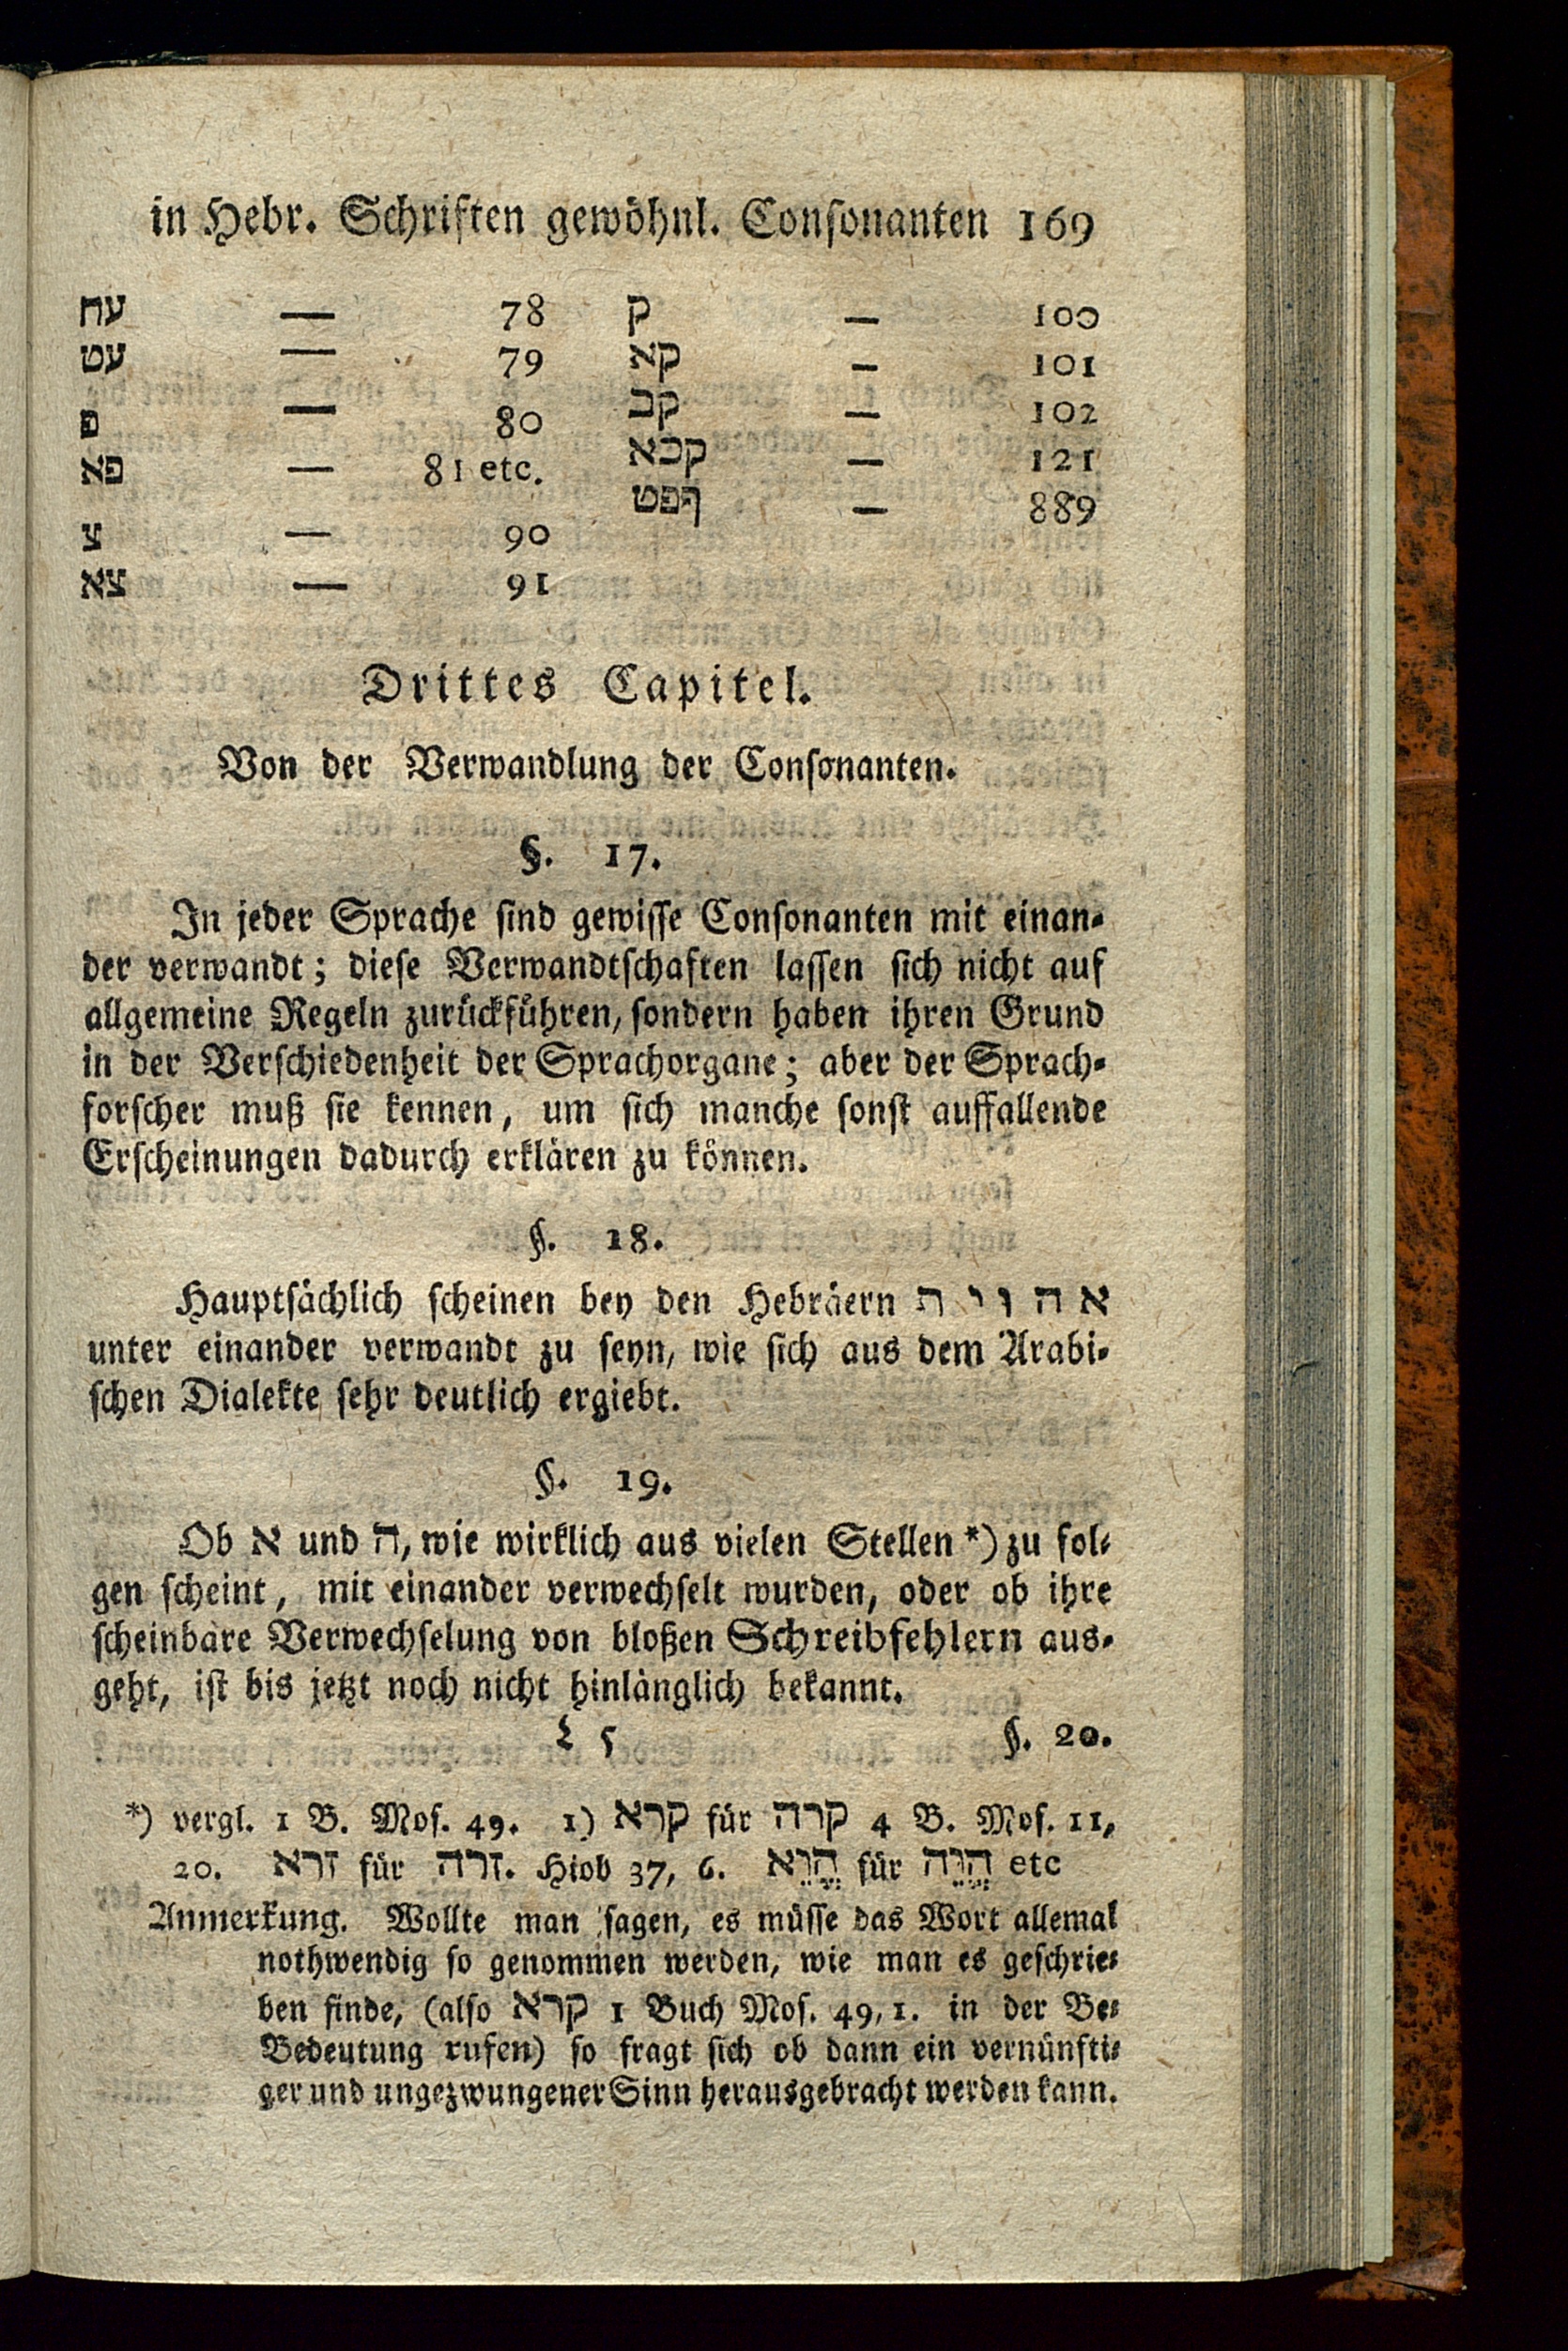 in Hebr. Schriften gewöhnl. Consonanten 169
עח — 78
עט — 79
פ — 80
פא — 81 etc.
צ — 90
צא — 91
ק — 100
קא — 101
קב — 102
קכא — 121
ףפט — 889
Drittes Capitel.
Von der Verwandlung der Consonanten.
§. 17.
In jeder Sprache sind gewisse Consonanten mit einan-
der verwandt; diese Verwandtschaften lassen sich nicht auf
allgemeine Regeln zurückführen, sondern haben ihren Grund
in der Verschiedenheit der Sprachorgane; aber der Sprach-
forscher muß sie kennen, um sich manche sonst auffallende
Erscheinungen dadurch erklären zu können.
§. 18.
Hauptsächlich scheinen bey den Hebräern א ה ו י ח
unter einander verwandt zu seyn, wie sich aus dem Arabi-
schen Dialekte sehr deutlich ergiebt.
§. 19.
Ob א und ה, wie wirklich aus vielen Stellen *) zu fol-
gen scheint, mit einander verwechselt wurden, oder ob ihre
scheinbare Verwechselung von bloßen Schreibfehlern aus-
geht, ist bis jetzt noch nicht hinlänglich bekannt.
L 5 §. 20.
*) vergl. 1 B. Mos. 49. 1) קרא für קרה 4 B. Mos. 11,
20. זרא für זרה. Hiob 37, 6. הֱוֵא für הֱוֵה etc
Anmerkung. Wollte man sagen, es müsse das Wort allemal
nothwendig so genommen werden, wie man es geschrie-
ben finde, (also קרא 1 Buch Mos. 49, 1. in der Be-
Bedeutung rufen) so fragt sich ob dann ein vernünfti-
ger und ungezwungener Sinn herausgebracht werden kann.